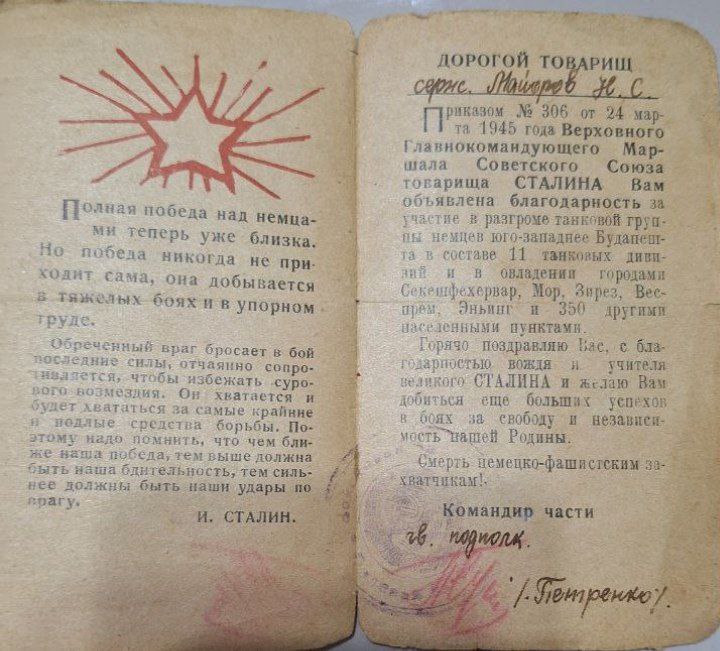 Полная победа над немца-
ми теперь уже близка.
Но победа никогда не при-
ходит сама, она добывается
в тяжелых боях и в упорном
труде.
Обреченный враг бросает в бой
последние силы, отчаянно сопро-
тивляется, чтобы избежать суро-
вого возмездия. Он хватается и
будет хвататься за самые крайние
и подлые средства борьбы. По-
этому надо помнить, что чем бли-
же наша победа, тем выше должна
быть наша бдительность, тем силь-
нее должны быть наши удары по
врагу.
И. СТАЛИН.
ДОРОГОЙ ТОВАРИЩ
серж. Майоров Н. С.
Приказом № 306 от 24 мар-
та 1945 года Верховного
Главнокомандующего Мар-
шала Советского Союза
товарища СТАЛИНА Вам
объявлена благодарность за
участие в разгроме танковой груп-
пы немцев юго-западнее Будапеш-
та в составе 11 танковых диви-
зий и в овладении городами
Секешфехервар, Мор, Зирез, Вес-
прем, Эньинг и 350 другими
населенными пунктами.
Горячо поздравляю Вас, с бла-
годарностью вождя и учителя
великого СТАЛИНА и желаю Вам
добиться еще больших успехов
в боях за свободу и независи-
мость нашей Родины.
Смерть немецко-фашистским за-
хватчикам!
Командир части
гв. подполк.
/. Петренко/.